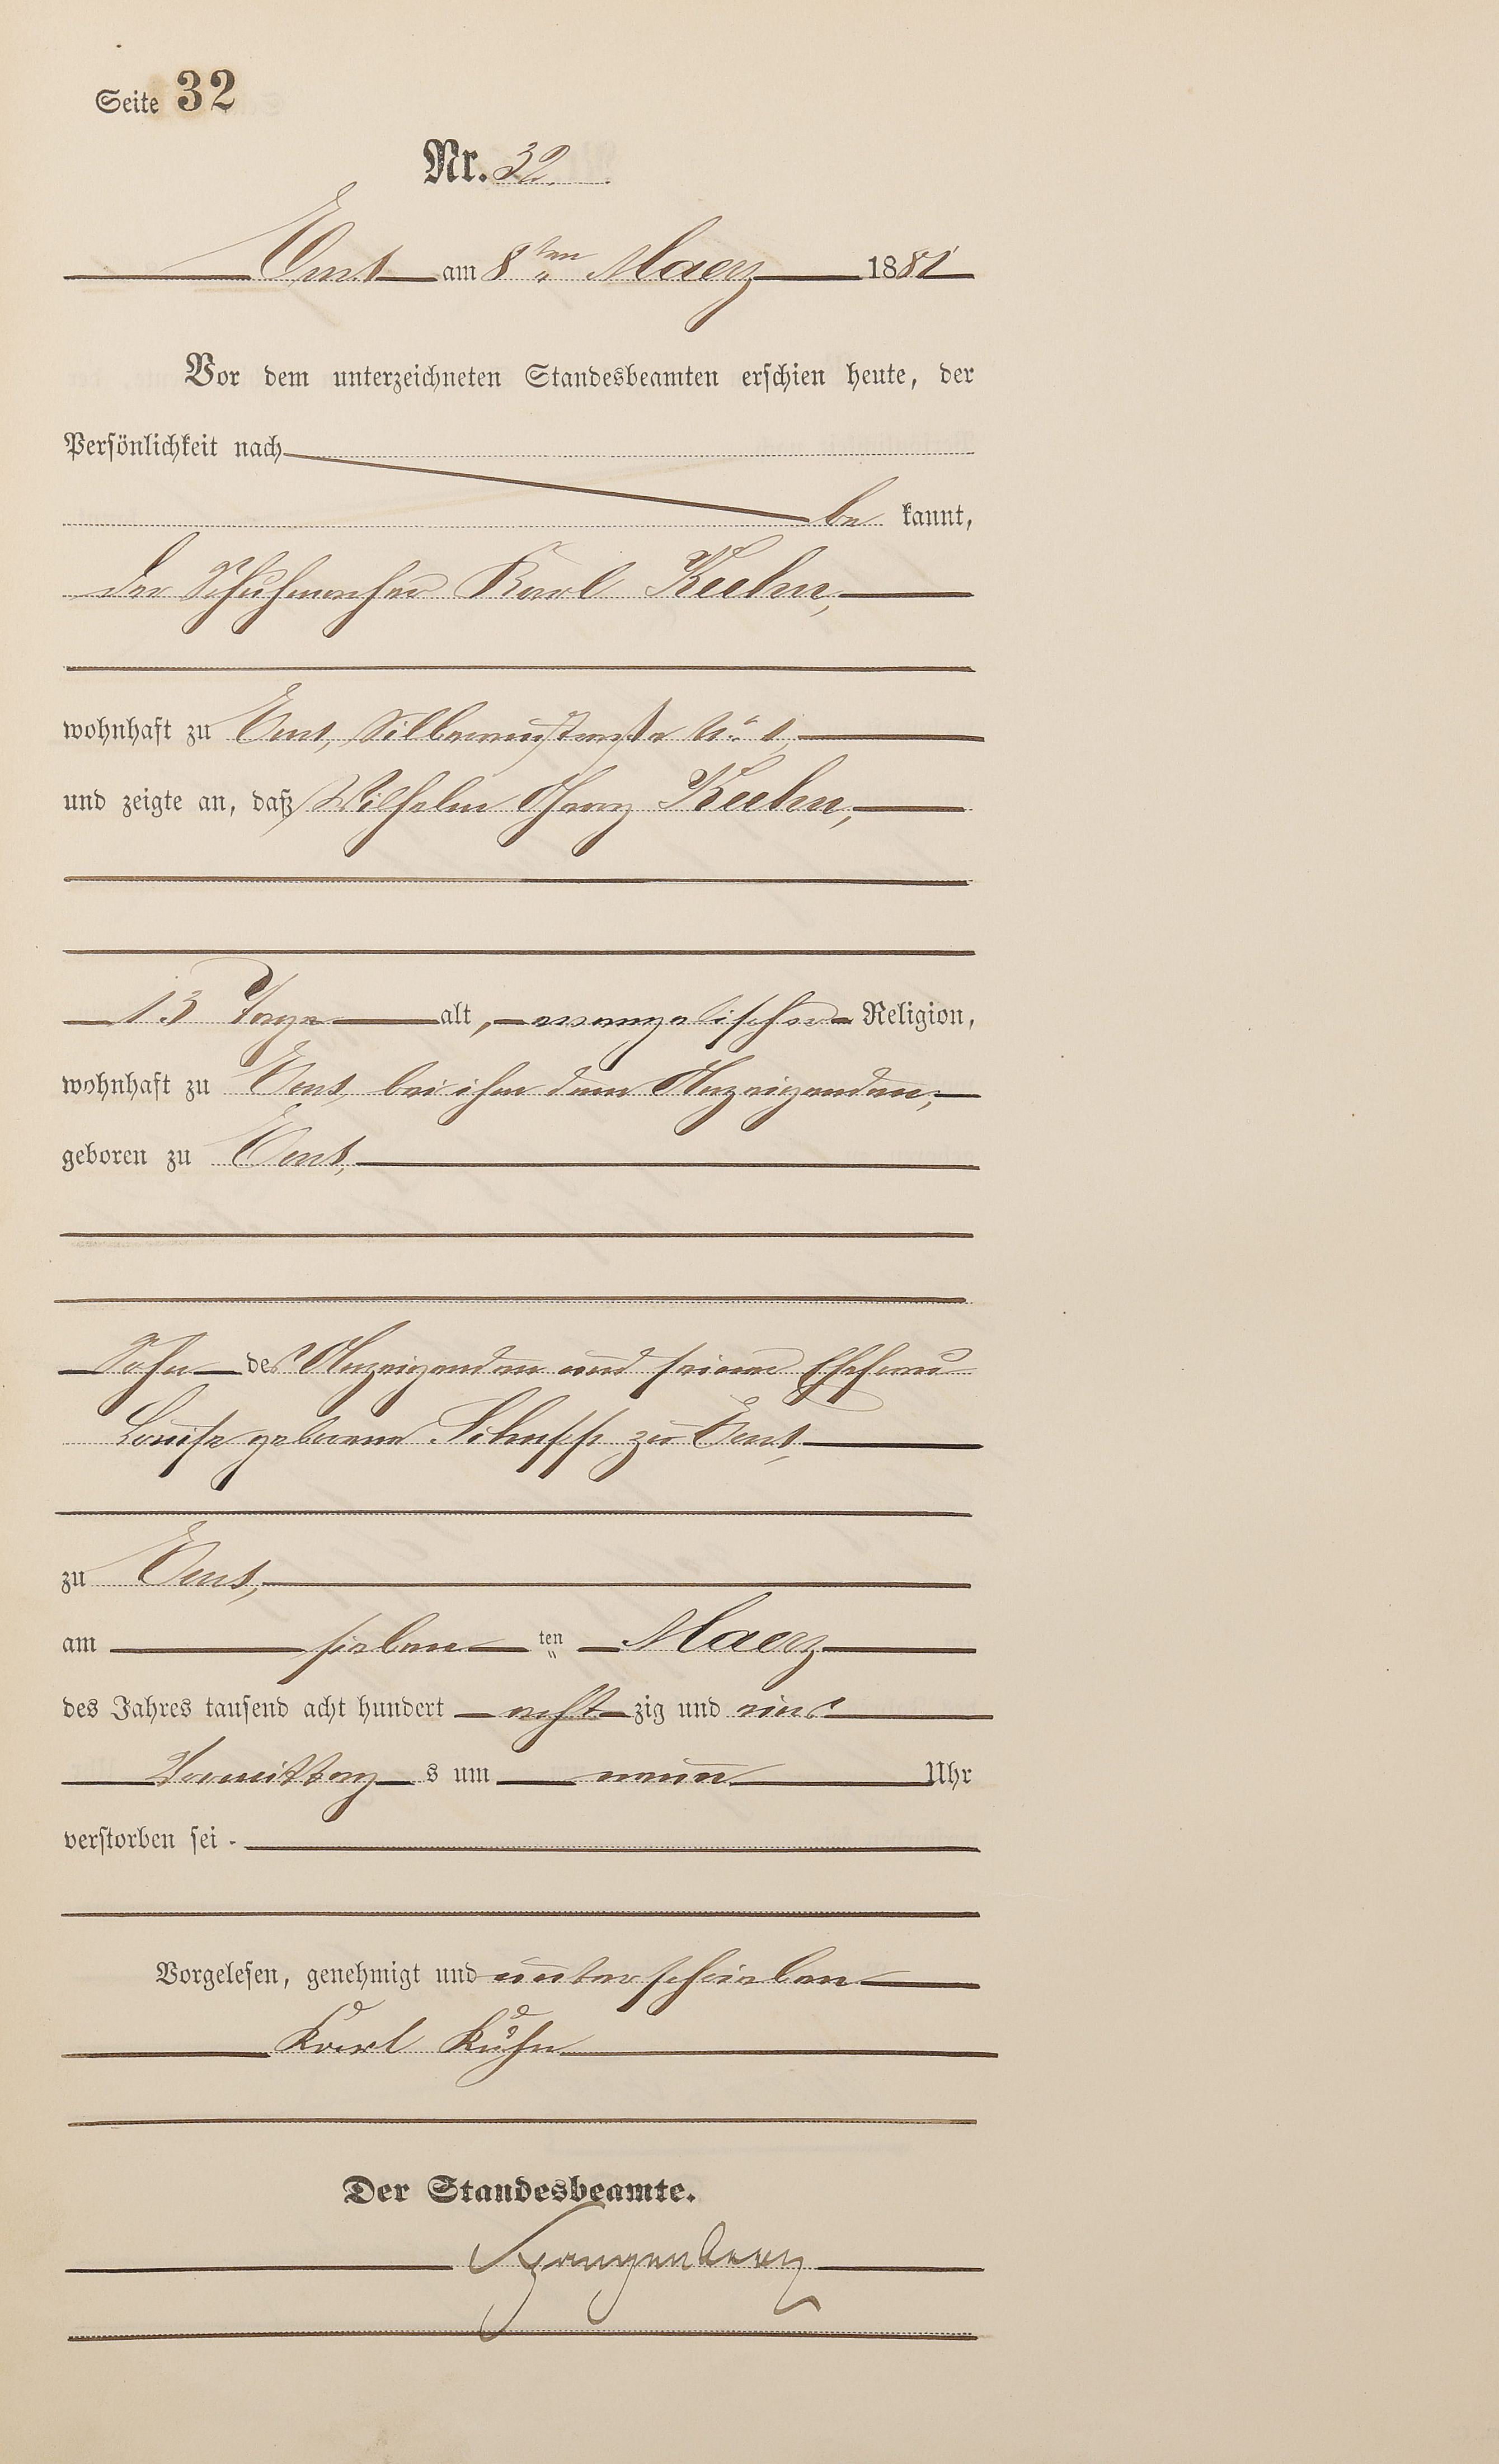 Seite 32
Nr. 32.
Ems am 8ten Maerz 1881
Vor dem unterzeichneten Standesbeamten erschien heute, der
Persönlichkeit nach
be kannt,
der Schuhmacher Karl Kuehn,
wohnhaft zu Ems, Silberaustraße No. 1,
und zeigte an, daß Wilhelm Kuehn,
13 Tage alt, evangelischer Religion,
wohnhaft zu Ems, bei ihm dem Anzeigenden,
geboren zu Ems,
Sohn des Anzeigenden und seiner Ehefrau
Louise geborene Schupp zu Ems,
zu Ems,
am sieben ten Maerz
des Jahres tausend acht hundert acht zig und eins
Vormittag s um neun Uhr
verstorben sei.
Vorgelesen, genehmigt und unterschrieben
Karl Kühn
Der Standesbeamte.
Spangenberg